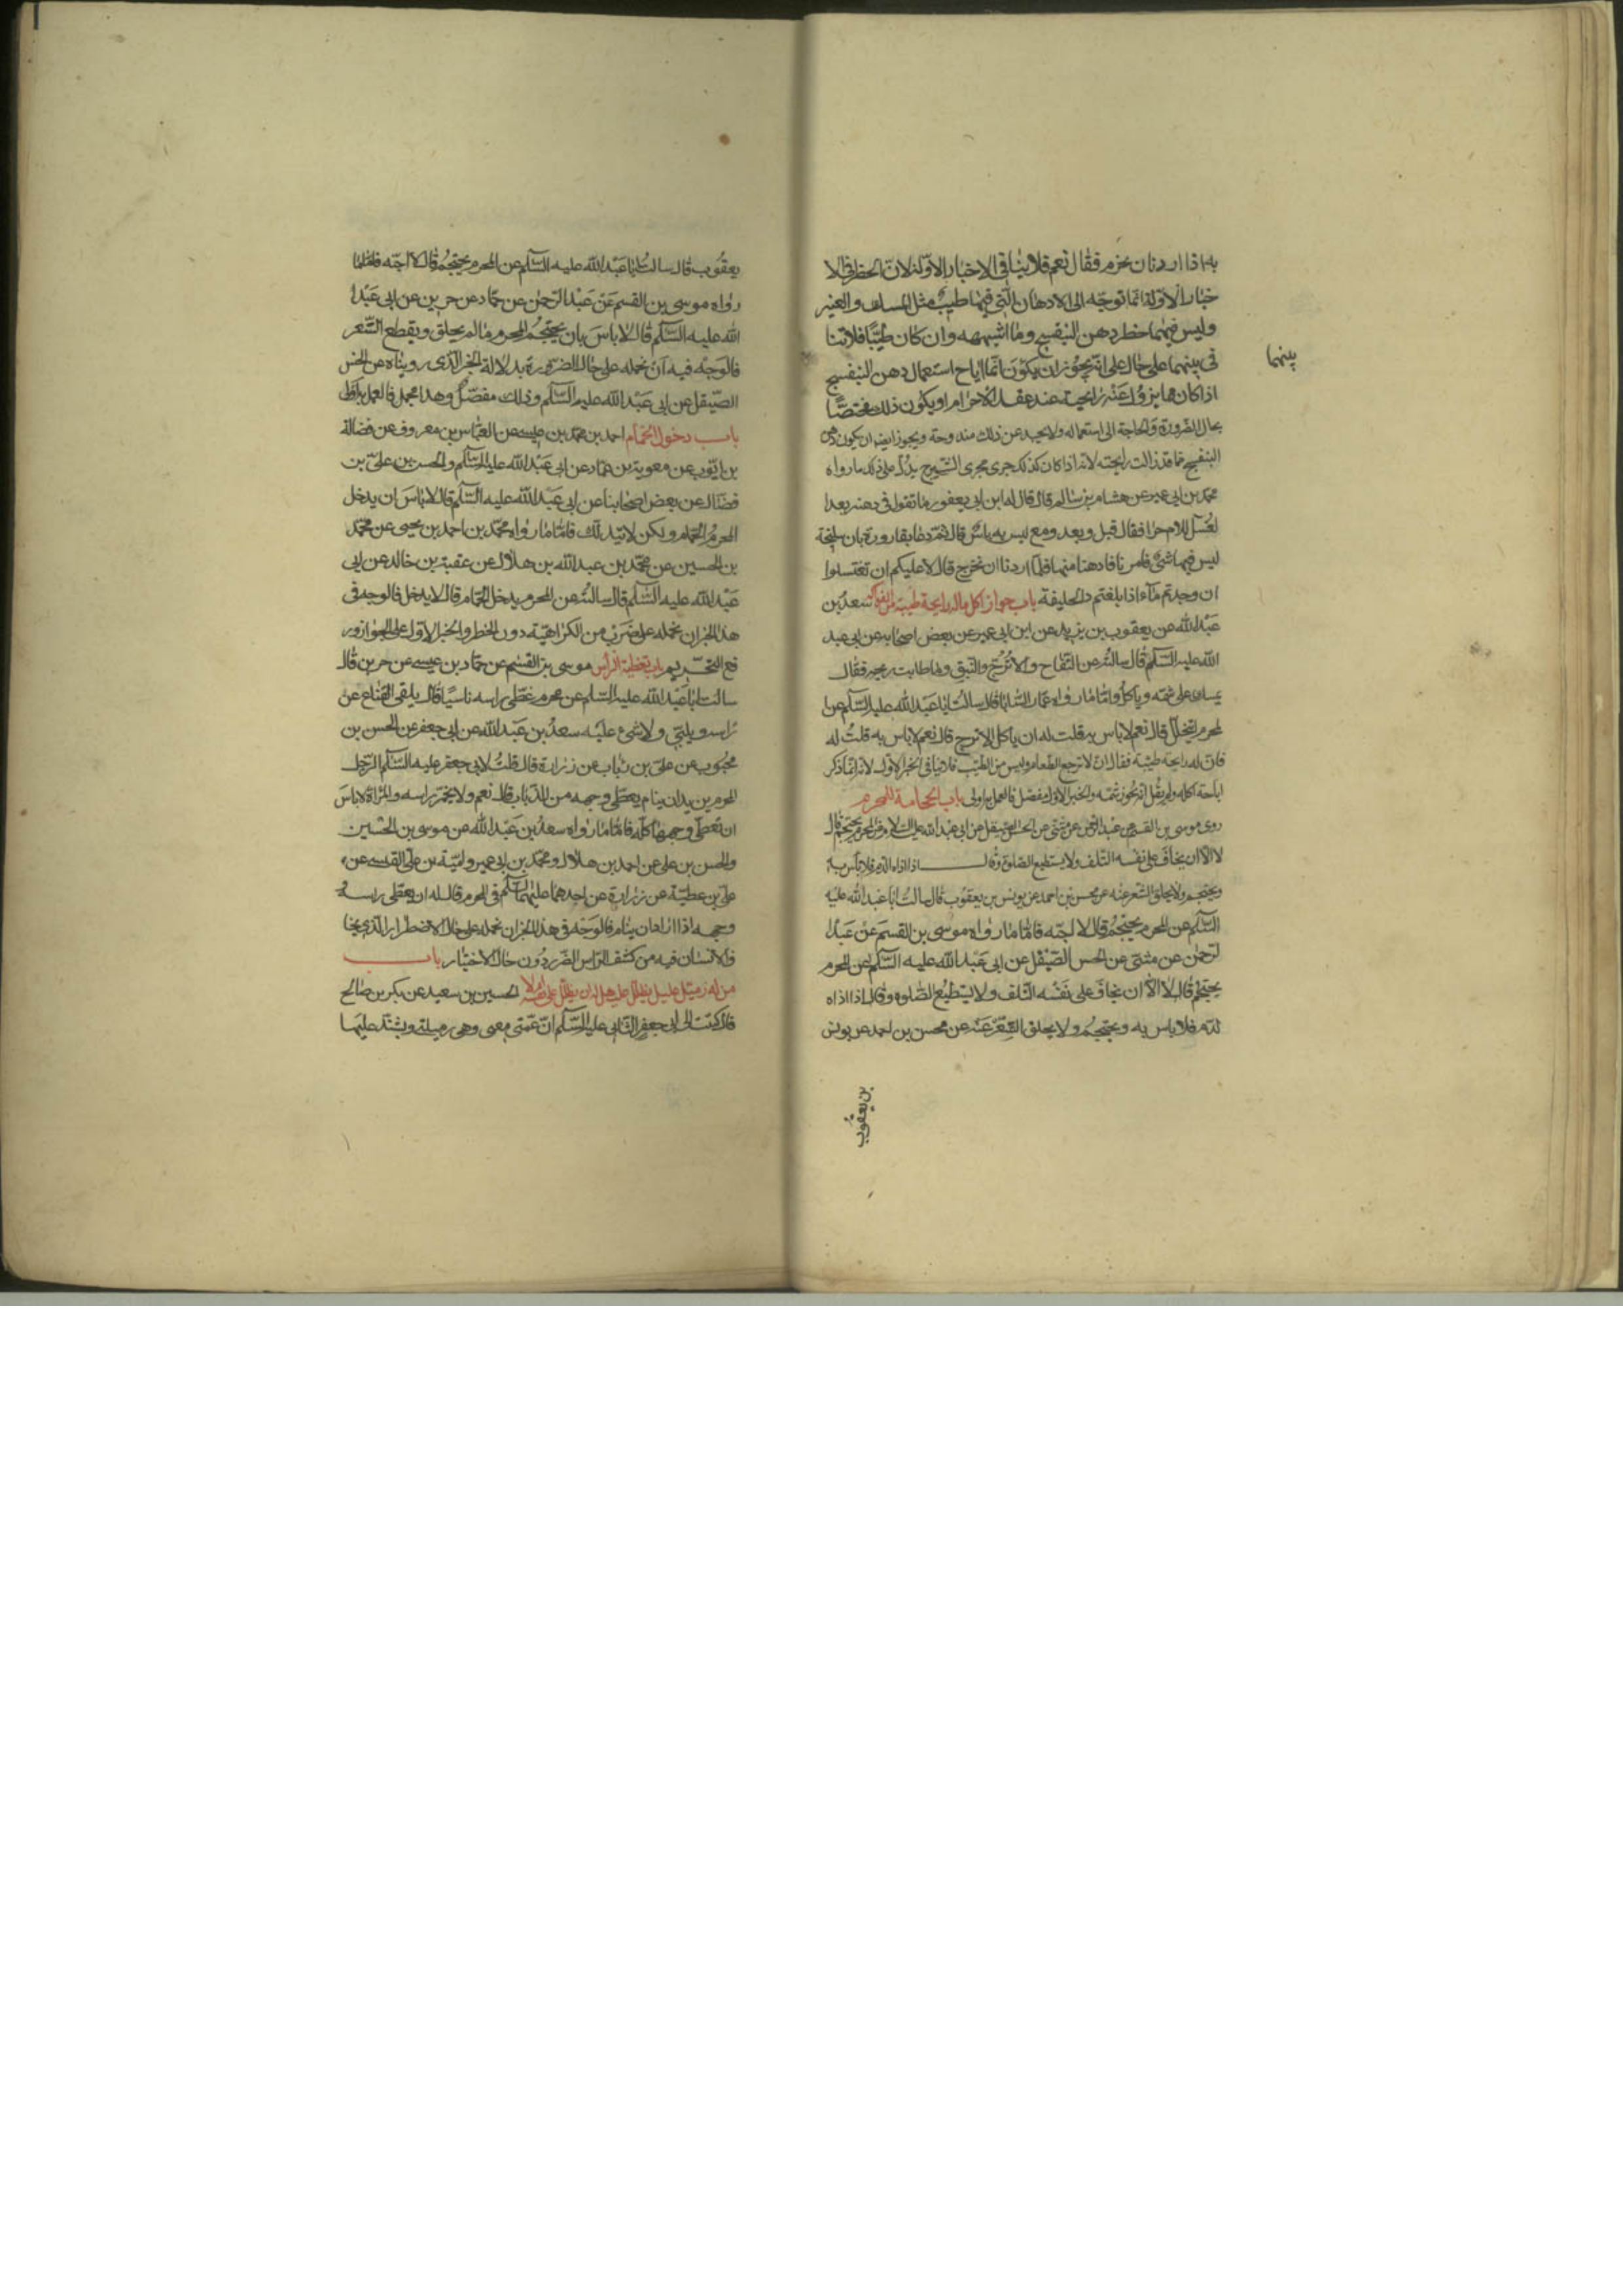 به اذا اردنا ان نحرم فقال نعم فلا ينافى الاخبار الاولة لان الحظر فى الا
خبار الاولة انما توجه الى الادهان التى فيها طيب مثل المسك والعنبر
وليس فيهما حظر دهن البنفسج وما اشبهه وان كان طيبا فلا تنا
فى بينهما على حال على انه يجوز ان يكون انما اباح استعمال دهن البنفسج
بينهما
اذا كان مما يزول عنه رائحته عند عقد الاحرام او يكون ذلك مختصا
بحال الضرورة والحاجة الى استعماله ولا يجد عن ذلك مندوحة ويجوز ايضا ان يكون دهن
البنفسج مما قد زالت رائحته لانه اذا كان كذلك جرى مجرى الشيرج يدل على ذلك ما رواه
محمد بن ابى عمير عن هشام بن سالم قال قال له ابن ابى يعفور ما تقول فى دهنه بعد ا
لغسل للاحرام فقال قبل وبعد ومع ليس به باس قال ثم دعا بقارورة بان سليخة
ليس فيها شئ فامرنا فادهنا منها فلما اردنا ان نخرج قال لا عليكم ان تغتسلوا
ان وجدتم ماء اذا بلغتم ذا الحليفة باب جواز اكل ماله رايحة طيبة من الفواكه سعد بن
عبد الله عن يعقوب بن يزيد عن ابن ابى عمير عن بعض اصحابه عن ابى عبد
الله عليه السلام قال سالته عن التفاح والاترج والنبق وما طابت ريحه فقال
يمسك على شمه وياكله واما ما رواه عمار الساباطى قال سالت ابا عبد الله عليه السلام عن ا
لمحرم ايتخلل قال نعم لا باس به قلت له ان ياكل الاترج قال نعم لا باس به قلت له
فان له رايحة طيبة فقال ان الاترج الطعام وليس من الطيب فلا ينافى الخبر الاول لانه انما ذكر
اباحة اكله ولم يقل انه يجوز شمه والخبر الاول مفصل فالعمل به اولى باب الحجامة للمحرم
روى موسى بن القسم عن عبد الرحمن عن مثنى عن الحسن الصيقل عن ابى عبد الله عليه السلام عن المحرم يحتجم قال
لا الا ان يخاف على نفسه التلف ولا يستطيع الصلوة وقال اذا اذاه الدم فلا باس به
ويحتجم ولا يحلق الشعر عنه عن محسن بن احمد عن يونس بن يعقوب قال سالت ابا عبد الله عليه
السلام عن المحرم يحتجم قال لا احبه فاما ما رواه موسى بن القسم عن عبد ا
لرحمن عن مثنى عن الحسن الصيقل عن ابى عبد الله عليه السلام عن المحرم
يحتجم قال لا الا ان يخاف على نفسه التلف ولا يستطيع الصلوة وقال اذا اذاه
الدم فلا باس به ويحتجم ولا يحلق الشعر عنه عن محسن بن احمد عن يونس
بن يعقوب
يعقوب قال سالت ابا عبد الله عليه السلام عن المحرم يحتجم قال لا احبه فاما ما
رواه موسى بن القسم عن عبد الرحمن عن حماد عن حريز عن ابى عبد ا
لله عليه السلام قال لا باس بان يحتجم المحرم ما لم يحلق ويقطع الشعر
فالوجه فيه ان نحمله على حال الضرورة بدلالة الخبر الذى رويناه عن الحسن
الصيقل عن ابى عبد الله عليه السلام وذلك مفصل وهذا مجمل فالعمل به
باب دخول الحمام احمد بن محمد بن عيسى عن العباس بن معروف عن فضالة
بن ايوب عن معوية بن عمار عن ابى عبد الله عليه السلام والحسن بن على بن
فضال عن بعض اصحابنا عن ابى عبد الله عليه السلام قال لا باس ان يدخل
المحرم الحمام ولكن لا يتدلك فاما ما رواه محمد بن احمد بن يحيى عن محمد
بن الحسين عن محمد بن عبد الله بن هلال عن عقبة بن خالد عن ابى
عبد الله عليه السلام قال سالته عن المحرم يدخل الحمام قال لا يدخل فالوجه فى
هذا الخبر ان نحمله على ضرب من الكراهية دون الحظر والخبر الاول على الجواز ور
فع التحريم باب تغطية الراس موسى بن القسم عن حماد بن عيسى عن حريز قال
سالت ابا عبد الله عليه السلم عن محرم غطى راسه ناسيا قال يلقى القناع عن
راسه ويلبى ولا شئ عليه سعد بن عبد الله عن ابى جعفر عن الحسن بن
محبوب عن على بن رئاب عن زرارة قال قلت لابى جعفر عليه السلام الرجل
المحرم يريد ان ينام يغطى وجهه من الذباب قال نعم ولا يخمر راسه والمراة لا باس
ان تغطى وجهها كله فاما ما رواه سعد بن عبد الله عن موسى بن الحسين
والحسن بن على عن احمد بن هلال ومحمد بن ابى عمير وامية بن على القيسى عن
على بن عطية عن زرارة عن احدهما عليهما السلام فى المحرم قال له ان يغطى راسه
وجهه اذا اراد ان ينام فالوجه فى هذا الخبر ان نحمله على حال الاضطرار الذى يخا
ف الانسان فيه من كشف الراس الضرر دون حال الاختيار باب
من له زميل عليل يظلل عليه هل له ان يظلل على نفسه ام لا الحسين بن سعيد عن بكر بن صالح
قال كتبت الى ابى جعفر الثانى عليه السلام ان عمتى معى وهى زميلتى ويشتد عليها